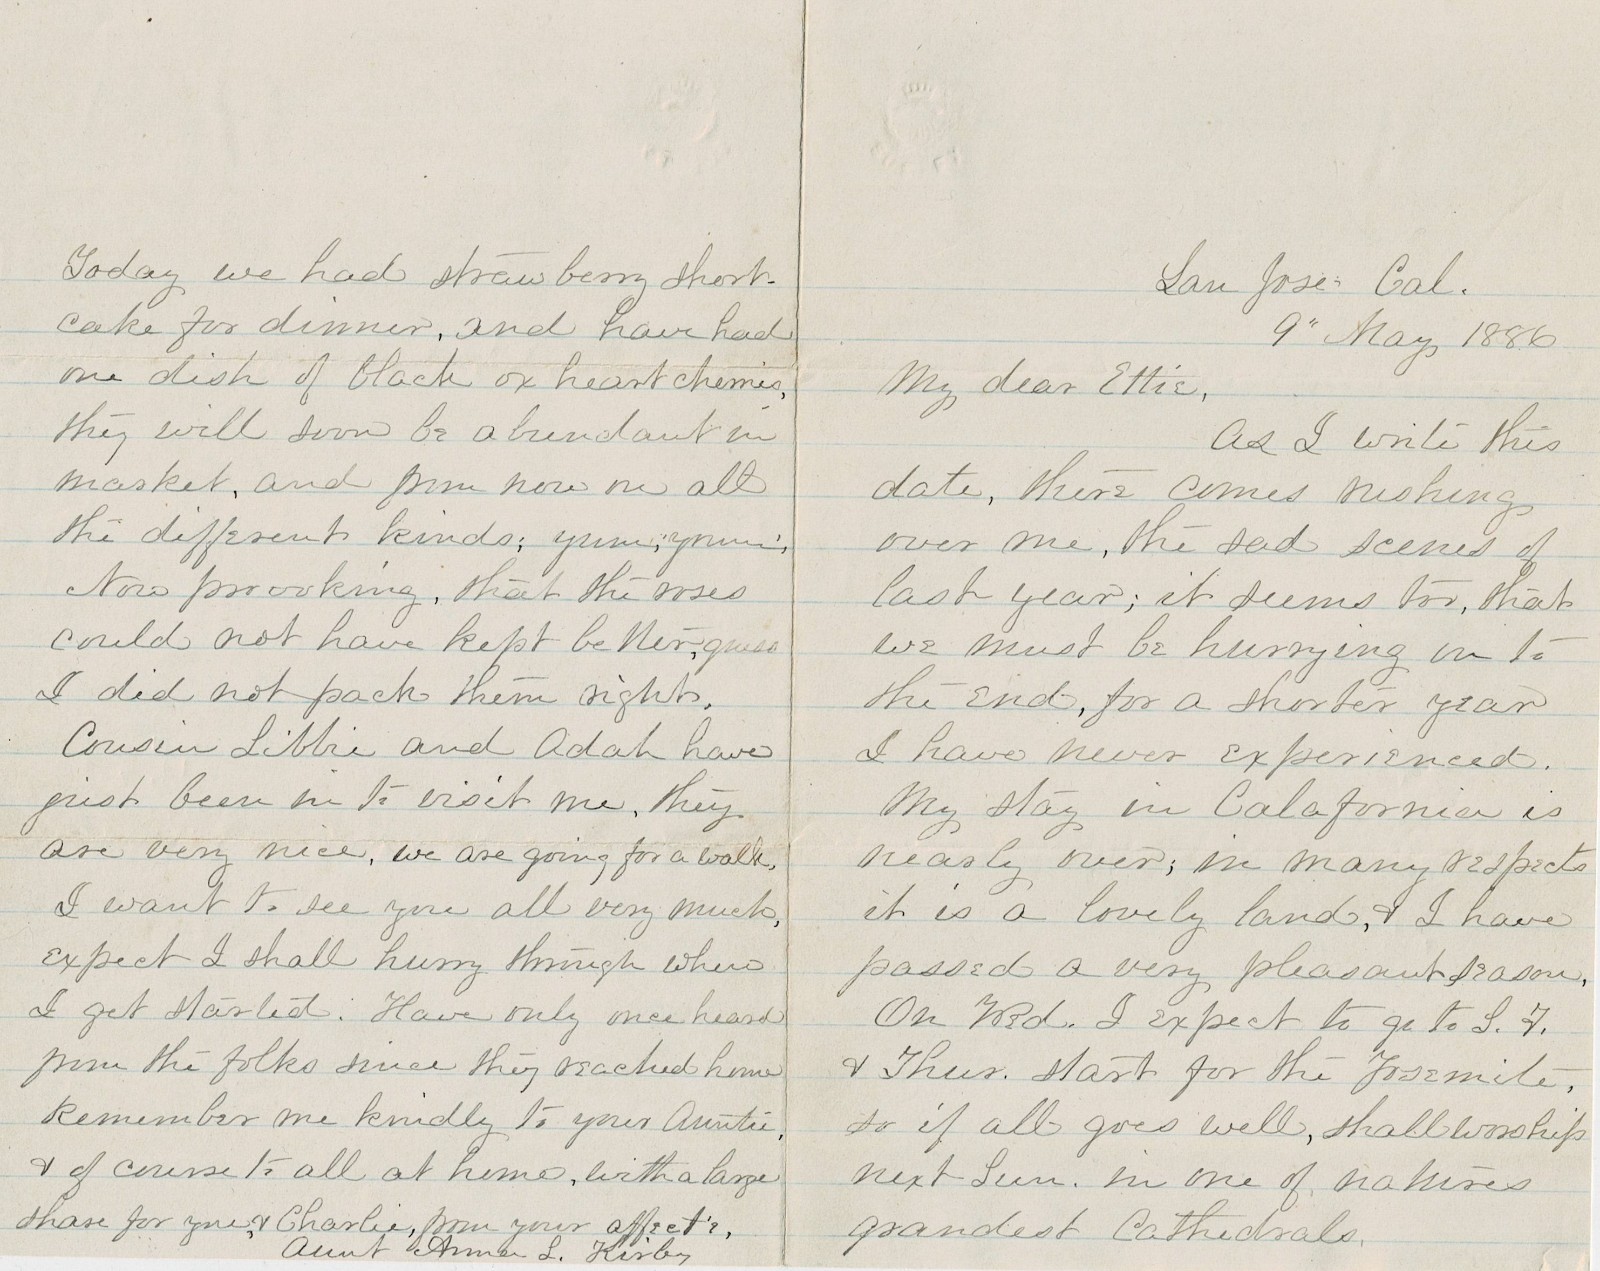 San Jose: Cal.
9" May, 1886
My dear Ettie,
As I write this
date, there comes rushing
over me, the sad scenes of
last year; it seems too, that
we must be hurrying on to
the end, for a shorter year
I have never experienced.
My stay in Calafornia is
nearly over; in many respects
it is a lovely land, & I have
passed a very pleasant season,
On Wed. I expect to go to S. F.
& Thur. start for the Yosemite,
so if all goes well, shall worship
next Sun. in one of natures
grandest Cathedrals.
Today we had strawberry short-
cake for dinner, and have had
one dish of black ox heart cherries,
they will soon be abundant in
market, and from now on all
the different kinds; yum; yum;
Now provoking, that the roses
could not have kept better, guess
I did not pack them right,
Cousin Libbie and Adah have
just been in to visit me, they
are very nice, we are going for a walk,
I want to see you all very much,
expect I shall hurry through when
I get started. Have only once heard
from the folks since they reached home
Remember me kindly to your Auntie,
& of course to all at home, with a large
share for you, & Charlie, from your affect'e,
Aunt Anna L. Kirby